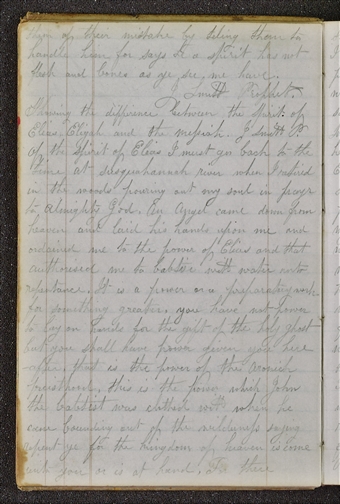 them of their mistake by telling them to
handle him for says he a spirit has not
flesh and bones as ye see me have.
Smith Prophet.
Shewing the difference between the Spirit of
Elias, Elijah and the messiah. J. Smith P
Of the spirit of Elias I must go back to the
time at susquehannah river when I retired
in the woods pouring out my soul in prayr
to Almighty God. An Angel came down from
heaven and laid his hands upon me and
ordained me to the power of Elias and that
authoresed me to babtise with water unto
repentance. It is a power or a preparatory work
for something greater. you have not power
to lay on hands for the gift of the holy ghost
but you shall have power given you here
after. that is the power of the Aronick
Preisthood. this is the power which John
the babtist was clothed with when he
came bounding out of the wilderness saying
repent ye for the Kingdom of heaven is come
unto you or is at hand. there